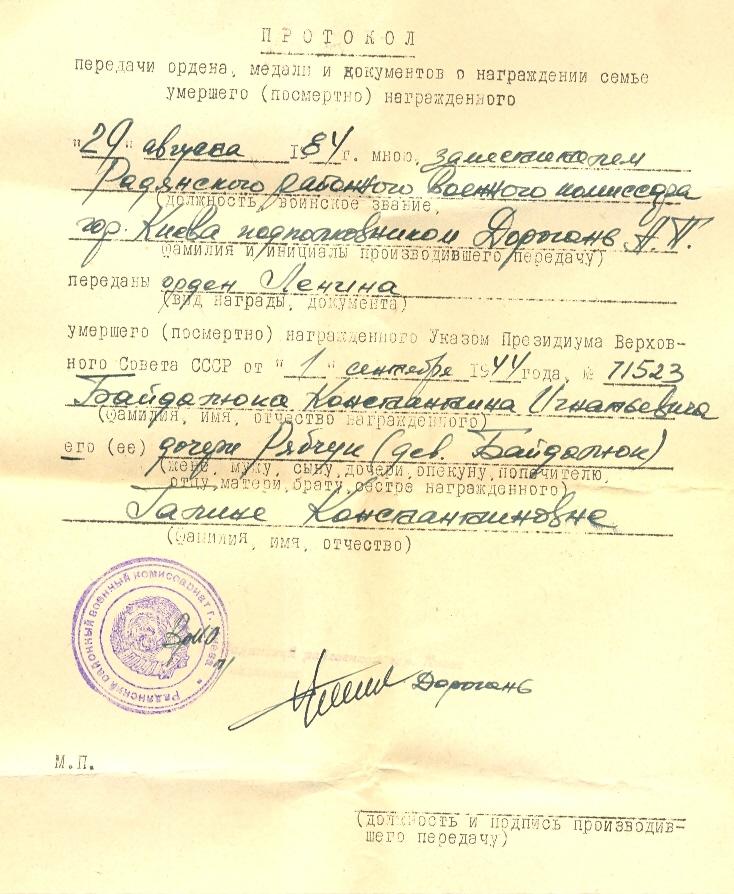 ПРОТОКОЛ
передачи ордена, медали и документов о награждении семье
умершего (посмертно) награжденного
"29" августа 1984г. мною, заместителем
Радянского районного военного комиссара
(должность, воинское звание,
гор. Киева подполковником Дорогань А.П.
фамилия и инициалы производившего передачу)
переданы орден Ленина
(вид награды, документа)
умершего (посмертно) награжденного Указом Президиума Верхов-
ного Совета СССР от "1" сентября 1944года, № 71523
Байдалюка Константина Игнатьевича
(фамилия, имя, отчество награжденного)
его (ее) дочери Рябчук (дев. Байдалюк)
(жене, мужу, сыну, дочери, опекуну, попечителю,
отцу, матери, брату, сестре награжденного)
Галине Константиновне
(фамилия, имя, отчество)
Радянский районный военный комиссариат г. Киева
Дорогань
М.П.
(должность и подпись производив-
шего передачу)